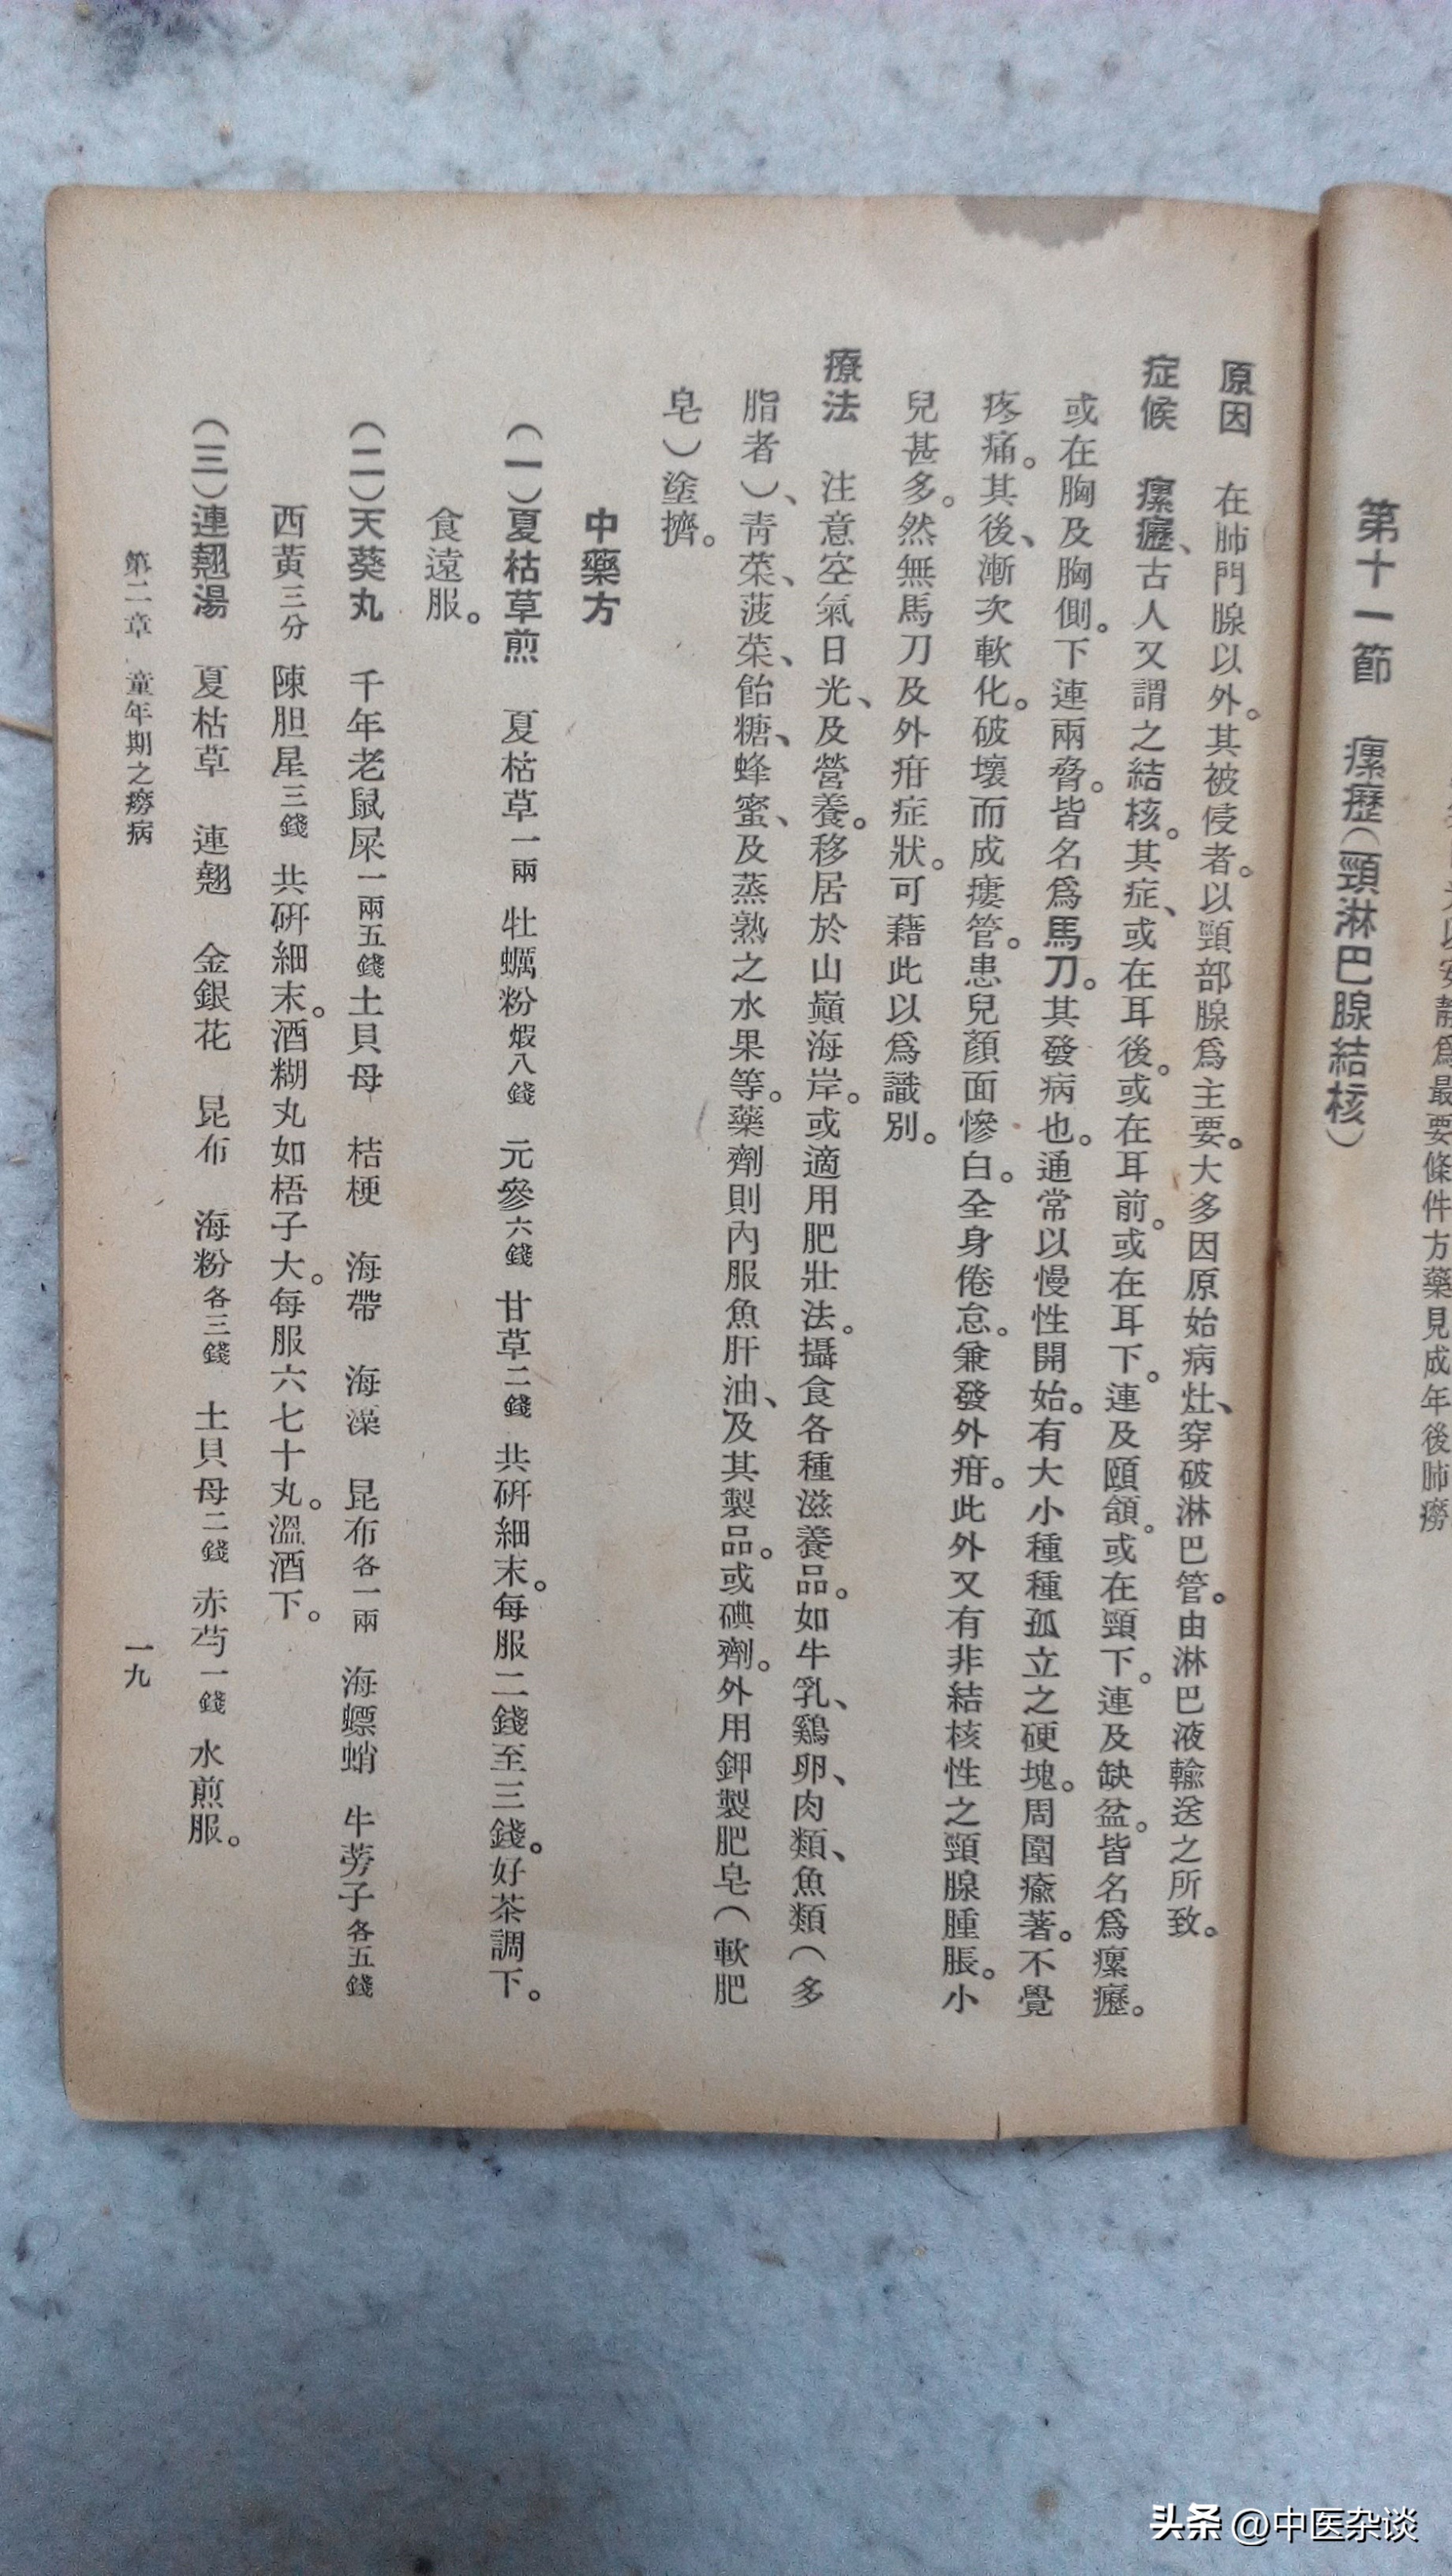 以安靜爲最要條件方藥見成年後肺癆
第十一節　瘰癧（頸淋巴腺結核）
原因　在肺門腺以外。其被侵者。以頸部腺爲主要。大多因原始病灶、穿破淋巴管。由淋巴液輸送之所致。
症候　瘰癧、古人又謂之結核。其症、或在耳後。或在耳前。或在耳下。連及頤頷。或在頸下。連及缺盆。皆名爲瘰癧。
或在胸及胸側。下連兩脅。皆名爲馬刀。其發病也。通常以慢性開始。有大小種種孤立之硬塊。周圍癒著。不覺
疼痛。其後、漸次軟化。破壞而成瘻管。患兒顏面慘白。全身倦怠。兼發外疳。此外又有非結核性之頸腺腫脹。小
兒甚多。然無馬刀及外疳症狀。可藉此以爲識別。
療法　注意空氣日光、及營養。移居於山巔海岸。或適用肥壯法。攝食各種滋養品。如牛乳、鷄卵、肉類、魚類（多
脂者）、青菜、菠菜、飴糖、蜂蜜、及蒸熟之水果等。藥劑則內服魚肝油、及其製品。或碘劑。外用鉀製肥皂（軟肥
皂）塗擠。
中藥方
（一）夏枯草煎　夏枯草一兩　牡蠣粉煅八錢　元參六錢　甘草二錢　共研細末。每服二錢至三錢。好茶調下。
食遠服。
（二）天葵丸　千年老鼠屎一兩五錢　土貝母　桔梗　海帶　海藻　昆布各一兩　海螵蛸　牛蒡子各五錢
西黃三分　陳胆星三錢　共研細末。酒糊丸如梧子大。每服六七十丸。溫酒下。
（三）連翹湯　夏枯草　連翹　金銀花　昆布　海粉各三錢　土貝母二錢　赤芍一錢　水煎服。
第二章　童年期之癆病　一九
头条 @中医杂谈